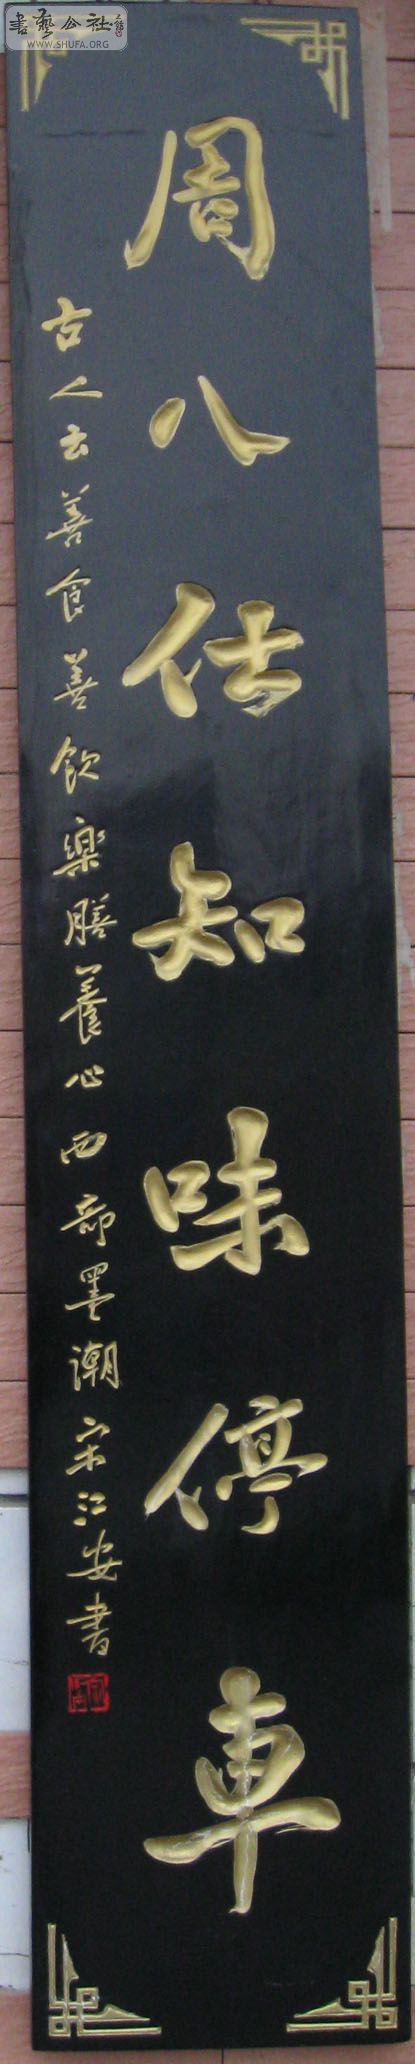 書藝公社
WWW.SHUFA.ORG
周八仕知味停車
古人云善食善飲樂膳養心西部墨潮宋江安書